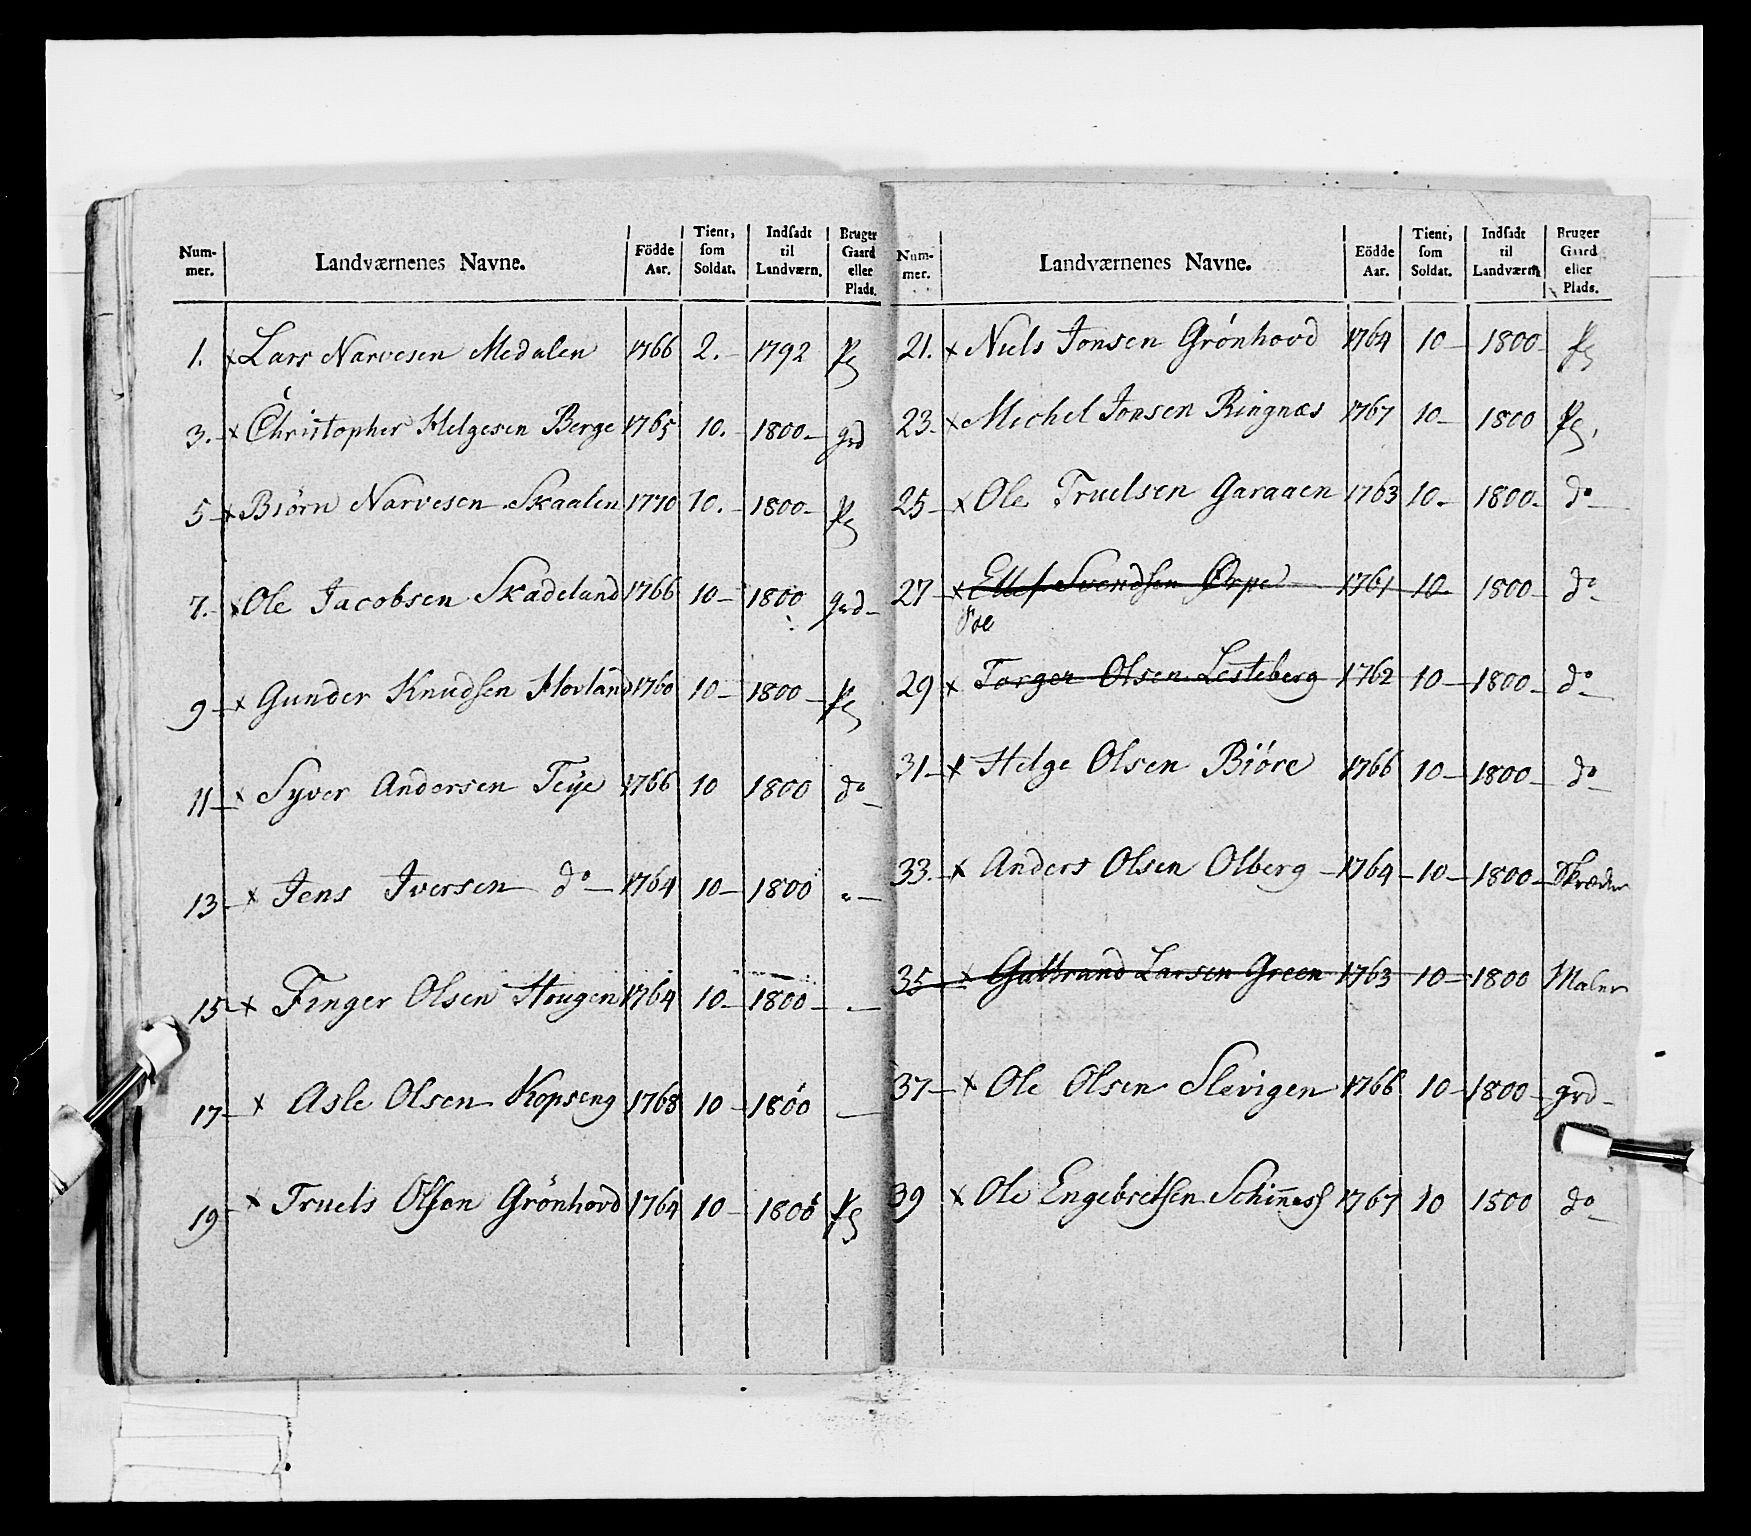 Num-mer. Landværnenes Navne. Födde Aar. Tient, som Soldat. Indsadt til Landværn. Bruger Gaard eller Plads.
1. x Lars Narvesen Medalen 1766 2.- 1792 Pl
3.- x Christopher Helgesen Berge 1765 10. 1800- grd
5- x Biörn Narvesen Skaalen 1770 10.- 1800- Pl
7.- x Ole Jacobsen Skadeland 1766 10- 1800 grd-
9- x Gunder Knudsen Hovland 1760 10- 1800- Pl
11- x Syver Andersen Teÿe 1766 10 1800 do-
13- x Jens Iversen do- 1764 10- 1800 "-
15- x Finger Olsen Hougen 1764 10- 1800- -
17- x Asle Olsen Kopseng 1768 10- 1800 -
19- x Truels Olson Grönhovd 1764 10- 1800 Pl
Num-mer. Landværnenes Navne. Eödde Aar. Tient, som Soldat. Indsadt til Landværn Bruger Gaard eller Plads.
21. x Niels Jonsen Grönhovd 1764 10- 1800- Pl
23- x Michel Jonsen Ringnæs 1767 10- 1800 Pl,
25- x Ole Truelsen Garaaen 1763 10- 1800- do-
27- x Ellef Svendsen Ørpe 1761 10- 1800- do-
29 x Torger Olsen Lesteberg 1762 10- 1800- do-
31- x Helge Olsen Biöre 1766 10- 1800- do-
33.- x Anders Olsen Olberg- 1764- 10- 1800- Skræder
35- x Gulbrand Larsen Green 1763 10- 1800 Maler
37- x Ole Olsen Slevigen 1766 10- 1800- grd-
39 x Ole Engebretsen Schinness 1767 10 1800 do-